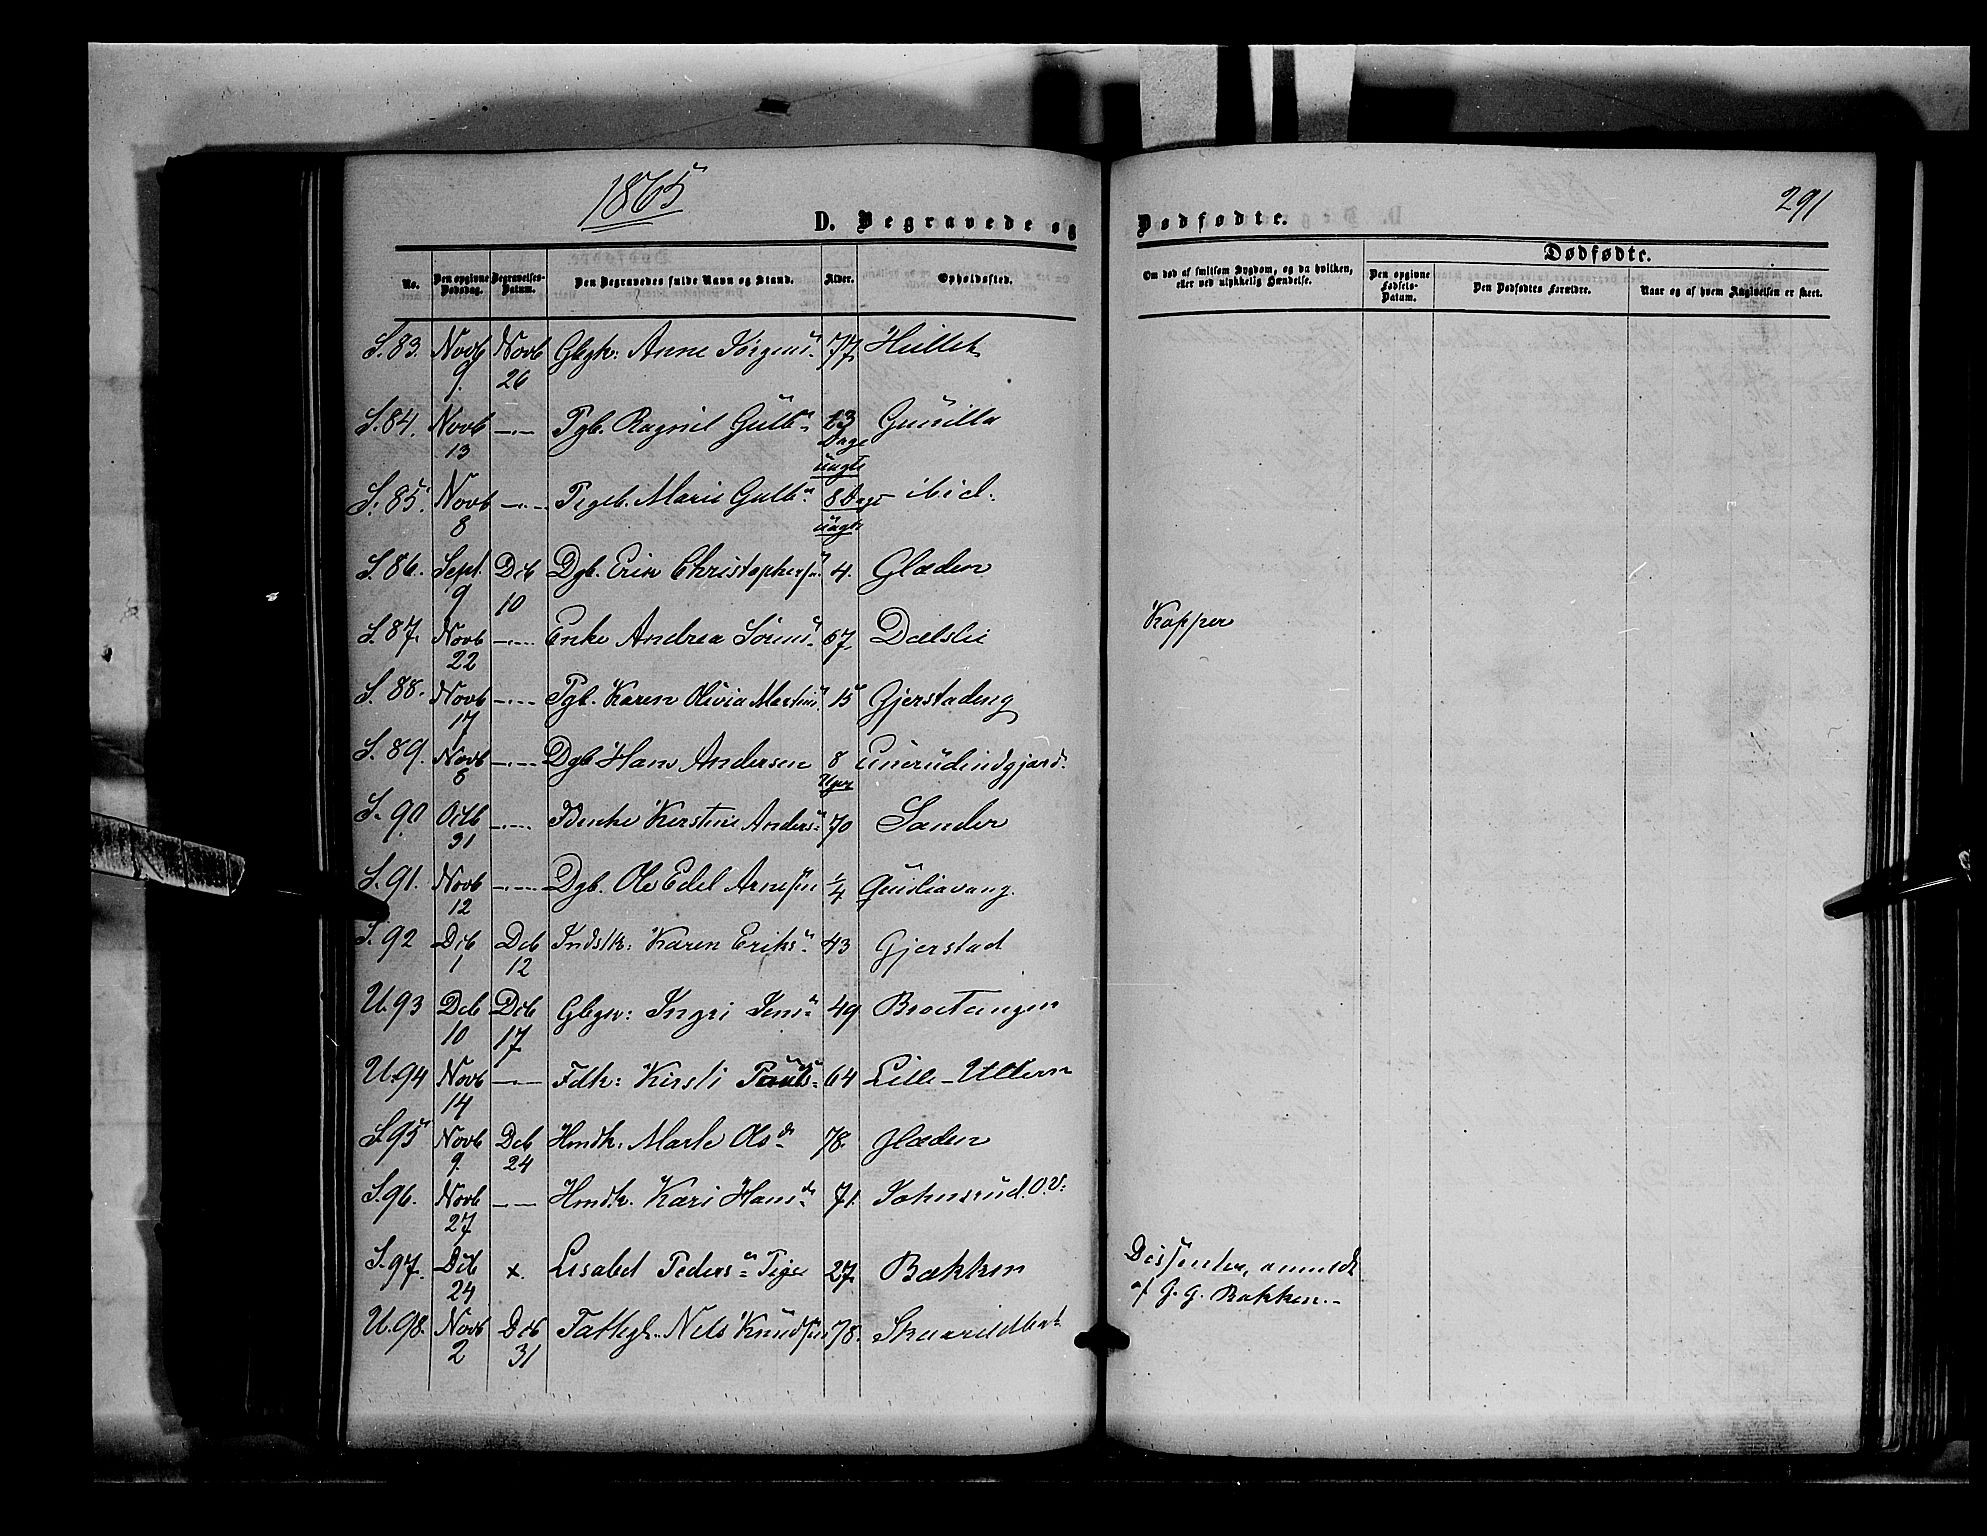 1865
291
D. Begravede og Dødfødte.
Dødfødte.
No. Den opgivne Dødsdag. Begravelses-Datum. Den Begravedes fulde Navn og Stand. Alder. Opholdssted. Om død af smitsom Sygdom, og da hvilken, eller ved ulykkelig Hændelse. Den opgivne Fødsels-Datum. Den Dødfødtes Forældre. Naar og af hvem Angivelsen er skeet.
S. 83. Novb 9. Novb 26 Anne Jörgensd. 77 Hillet
S. 84. Novb 13 —"— Pgb. Ragnil Gulb 13 Dage uägte Gunilla
S. 85. Novb 8 —"— Pigeb. Marie Gulb 8 Dage uägte ibid.
S. 86. Sept. 9 Dcb 10 Dgb. Erik Christophersen 4. Glæden
S. 87. Novb 22 —"— Enke Andrea Sörens 67 Dælslie Kopper
S. 88. Novb 17 —"— Pgb. Karen Olivia Martins 15 Gjerstadeng
S. 89. Novb 8 —"— Dgb Hans Andersen 8 Uger
S. 90. Octb 31 —"— Kerstine Anders 70 Sander
S. 91. Novb 12 —"— Dgb. Ole Edel Arnesen 1/4
S. 92 Dcb 1 Dcb 12 Indstk: Karen Eriks 43 Gjerstad
U. 93 Dcb 10 Dcb 17 Ingri Jens 49 Braatangen
U. 94 Novb 14 —"— Fdk: Kirsti Pauls 64 Lille-Ullern
S. 95 Novb 9. Dcb 24 Hmdk: Marte Olsdr 78. Glæden
S. 96. Novb 27 —"— Hmdk. Kari Hansdr 71. Johnsrud O.V:
S. 97. Dcb 24 x. Lisabet Peders Pige 27 Bækken Dissenter, anmeldt
af J. G. Bækken.
U. 98. Novb 2 Dcb 31 Nils Knudsen 78.